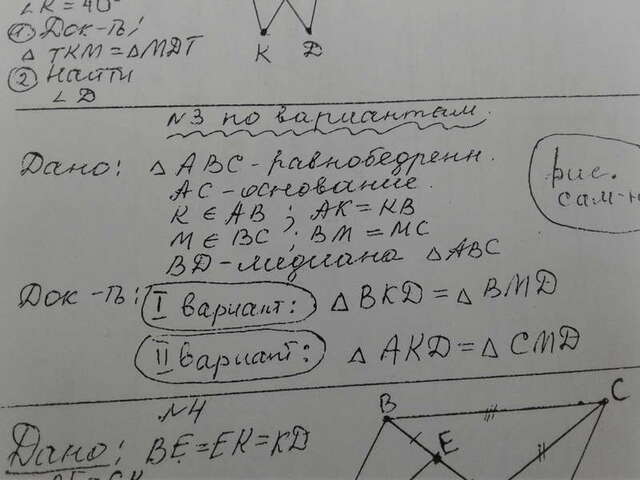 ∠K = 40°
① Док-ть:
△ TKM = △MDT
② Найти
∠D
K D
№3 по вариантам.
Дано: △ ABC - равнобедренн.
AC - основание.
K ∈ AB ; AK = KB
M ∈ BC ; BM = MC
BD - медиана △ABC
рис.
сам-н
Док-ть: I вариант: △ BKD = △ BMD
II вариант: △ AKD = △ CMD
№4
Дано: BE = EK = KD
B C
E